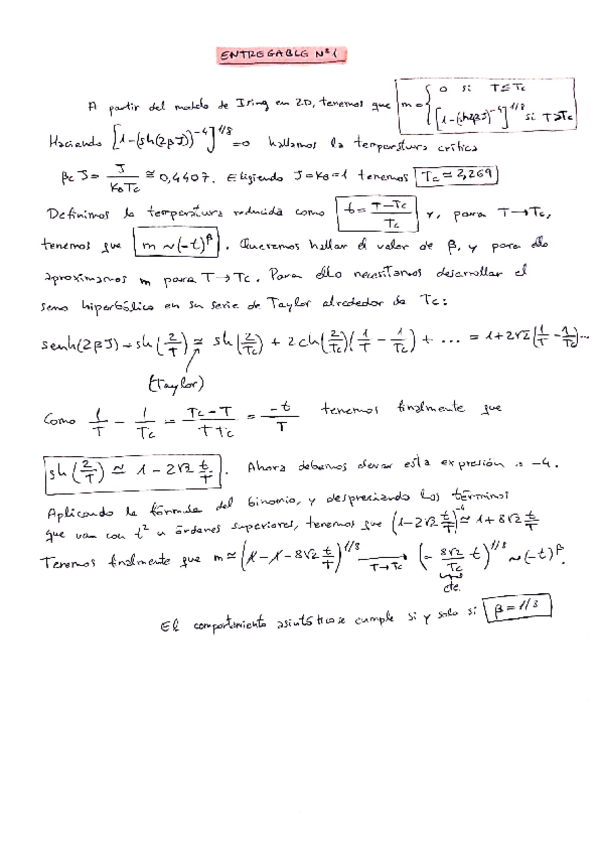 ENTREGABLE Nº1
A partir del modelo de Ising en 2D, tenemos que m = { 0 si T≤Tc
[1-(sh2βJ)^-4]^1/8 si T≥Tc
Haciendo [1-(sh(2βJ))^-4]^1/8 = 0 hallamos la temperatura crítica
βc J = J/(KB Tc) ≅ 0,4407. Eligiendo J=KB=1 tenemos Tc ≃ 2,269
Definimos la temperatura reducida como t = (T-Tc)/Tc y, para T→Tc,
tenemos que m ~ (-t)^β. Queremos hallar el valor de β, y para ello
aproximamos m para T→Tc. Para ello necesitamos desarrollar el
seno hiperbólico en su serie de Taylor alrededor de Tc:
senh(2βJ) = sh(2/T) ≃ sh(2/Tc) + 2ch(2/Tc)(1/T - 1/Tc) + ... = 1+2√2(1/T - 1/Tc)...
(Taylor)
Como 1/T - 1/Tc = (Tc-T)/(T Tc) = -t/T tenemos finalmente que
sh(2/T) ≃ 1 - 2√2 t/T. Ahora debemos elevar esta expresión a -4.
Aplicando la fórmula del binomio, y despreciando los términos
que van con t² u órdenes superiores, tenemos que (1-2√2 t/T)^-4 ≃ 1+8√2 t/T
Tenemos finalmente que m ≃ (1-1-8√2 t/T)^1/8 →(T→Tc) (- 8√2/Tc t)^1/8 ~ (-t)^β.
cte.
El comportamiento asintótico se cumple si y solo si β = 1/8